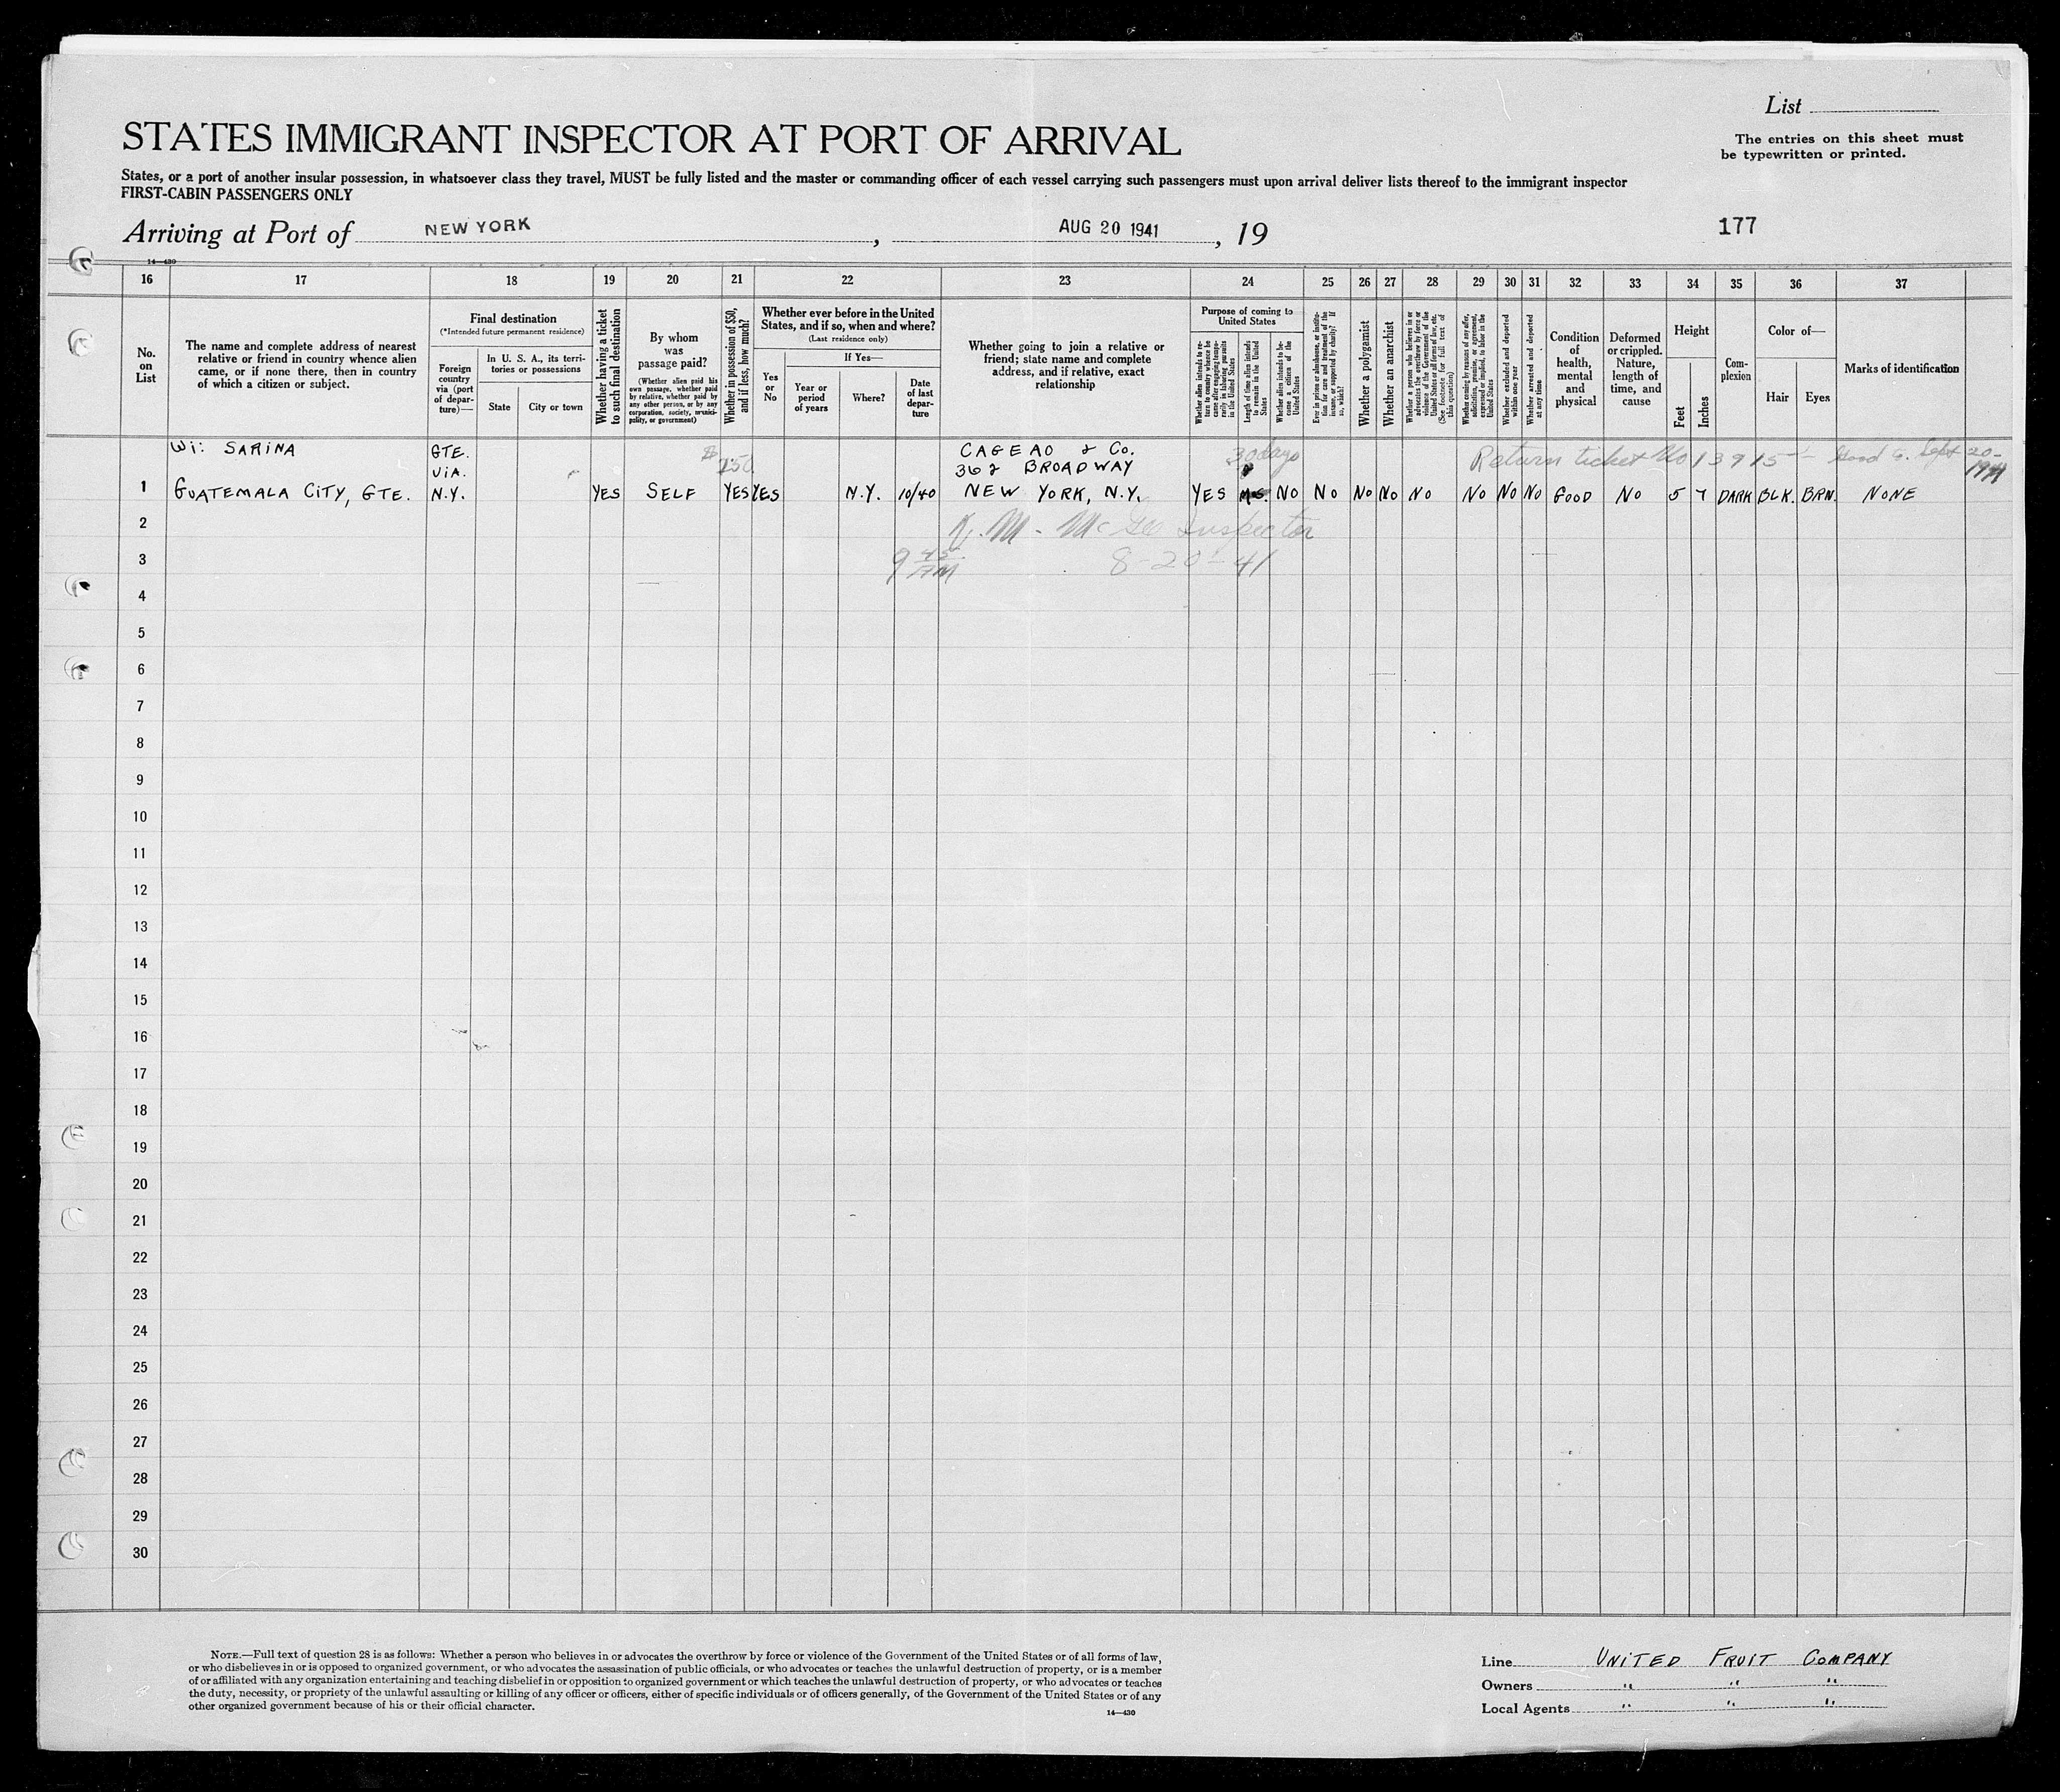 List
STATES IMMIGRANT INSPECTOR AT PORT OF ARRIVAL
The entries on this sheet must
be typewritten or printed.
States, or a port of another insular possession, in whatsoever class they travel, MUST be fully listed and the master or commanding officer of each vessel carrying such passengers must upon arrival deliver lists thereof to the immigrant inspector
FIRST-CABIN PASSENGERS ONLY
Arriving at Port of NEW YORK, AUG 20 1941, 19
177
14—430
16 17 18 19 20 21 22 23 24 25 26 27 28 29 30 31 32 33 34 35 36 37
No.
on
List
The name and complete address of nearest
relative or friend in country whence alien
came, or if none there, then in country
of which a citizen or subject.
Final destination
(*Intended future permanent residence)
Foreign
country
via (port
of depar-
ture)—
In U. S. A., its terri-
tories or possessions
State
City or town
Whether having a ticket
to such final destination
By whom
was
passage paid?
(Whether alien paid his
own passage, whether paid
by relative, whether paid by
any other person, or by any
corporation, society, munici-
pality, or government)
Whether in possession of $50,
and if less, how much?
Whether ever before in the United
States, and if so, when and where?
(Last residence only)
Yes
or
No
If Yes—
Year or
period
of years
Where?
Date
of last
depar-
ture
Whether going to join a relative or
friend; state name and complete
address, and if relative, exact
relationship
Purpose of coming to
United States
Whether alien intends to re-
turn to country whence he
came after engaging tempo-
rarily in laboring pursuits
in the United States
Length of time alien intends
to remain in the United
States
Whether alien intends to be-
come a citizen of the
United States
Ever in prison or almshouse, or institu-
tion for care and treatment of the
insane, or supported by charity? If
so, which?
Whether a polygamist
Whether an anarchist
Whether a person who believes in or
advocates the overthrow by force or
violence of the Government of the
United States or all forms of law, etc.
(See footnote for full text of
this question)
Whether coming by reasons of any offer,
solicitation, promise, or agreement,
expressed or implied, to labor in the
United States
Whether excluded and deported
within one year
Whether arrested and deported
at any time
Condition
of
health,
mental
and
physical
Deformed
or crippled.
Nature,
length of
time, and
cause
Height
Feet
Inches
Com-
plexion
Color of—
Hair
Eyes
Marks of identification
Wi: SARINA GTE. $ CAGEAO & Co. 30 days Return ticket No 13915 Sept 20-
VIA. 250 362 BROADWAY 1941
1 GUATEMALA CITY, GTE. N.Y. YES SELF YES YES N.Y. 10/40 NEW YORK, N.Y. YES NO NO NO NO NO NO NO NO GOOD NO 5 7 DARK BLK. BRN. NONE
2 Inspector
3 9 45 AM 8-20-41
4
5
6
7
8
9
10
11
12
13
14
15
16
17
18
19
20
21
22
23
24
25
26
27
28
29
30
NOTE.—Full text of question 28 is as follows: Whether a person who believes in or advocates the overthrow by force or violence of the Government of the United States or of all forms of law,
or who disbelieves in or is opposed to organized government, or who advocates the assassination of public officials, or who advocates or teaches the unlawful destruction of property, or is a member
of or affiliated with any organization entertaining and teaching disbelief in or opposition to organized government or which teaches the unlawful destruction of property, or who advocates or teaches
the duty, necessity, or propriety of the unlawful assaulting or killing of any officer or officers, either of specific individuals or of officers generally, of the Government of the United States or of any
other organized government because of his or their official character.
14—430
Line UNITED FRUIT COMPANY
Owners " " "
Local Agents " " "